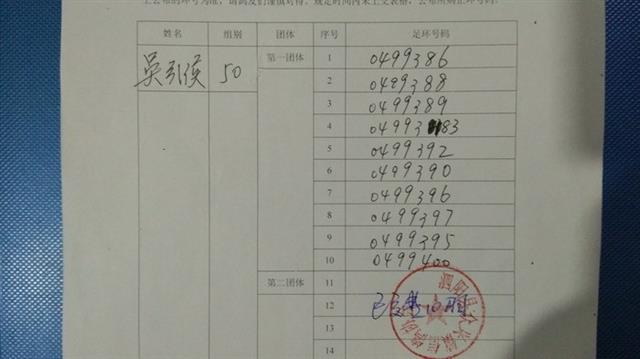 上公布的环号为准，请鸽友们谨慎对待。规定时间内未上交表格，公布所购足环号码。
姓名 组别 团体 序号 足环号码
吴引侯 50 第一团体 1 0499386
2 0499388
3 0499389
4 0499383
5 0499392
6 0499390
7 0499396
8 0499397
9 0499395
10 0499400
第二团体 11
12
13
14